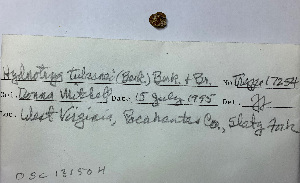 Hydnotrya tulasnei (Berk.) Berk. & Br. No. Trappe 17254
Col. Donna Mitchell Date: 15 July 1995 Det.
Loc. West Virginia, Pocahontas Co., Slaty Fork
OSC 131504